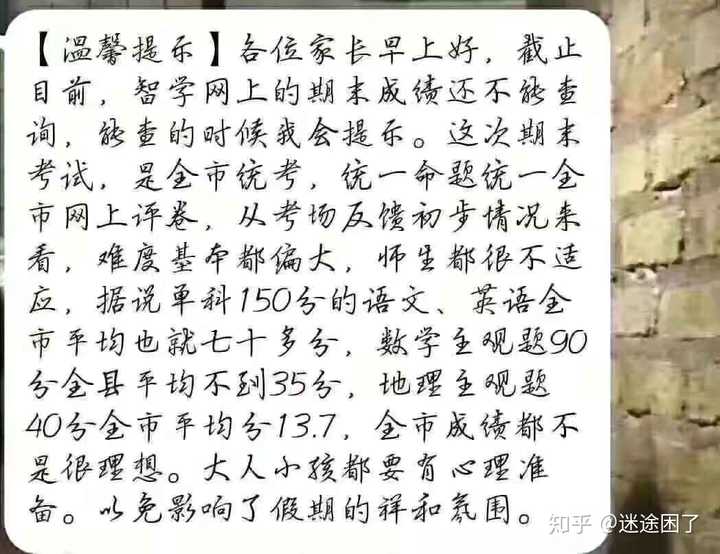 【温馨提示】各位家长早上好，截止
目前，智学网上的期末成绩还不能查
询，能查的时候我会提示。这次期末
考试，是全市统考，统一命题统一全
市网上评卷，从考场反馈初步情况来
看，难度基本都偏大，师生都很不适
应，据说单科150分的语文、英语全
市平均也就七十多分，数学主观题90
分全县平均不到35分，地理主观题
40分全市平均分13.7，全市成绩都不
是很理想。大人小孩都要有心理准
备。以免影响了假期的祥和氛围。
知乎 @迷途困了